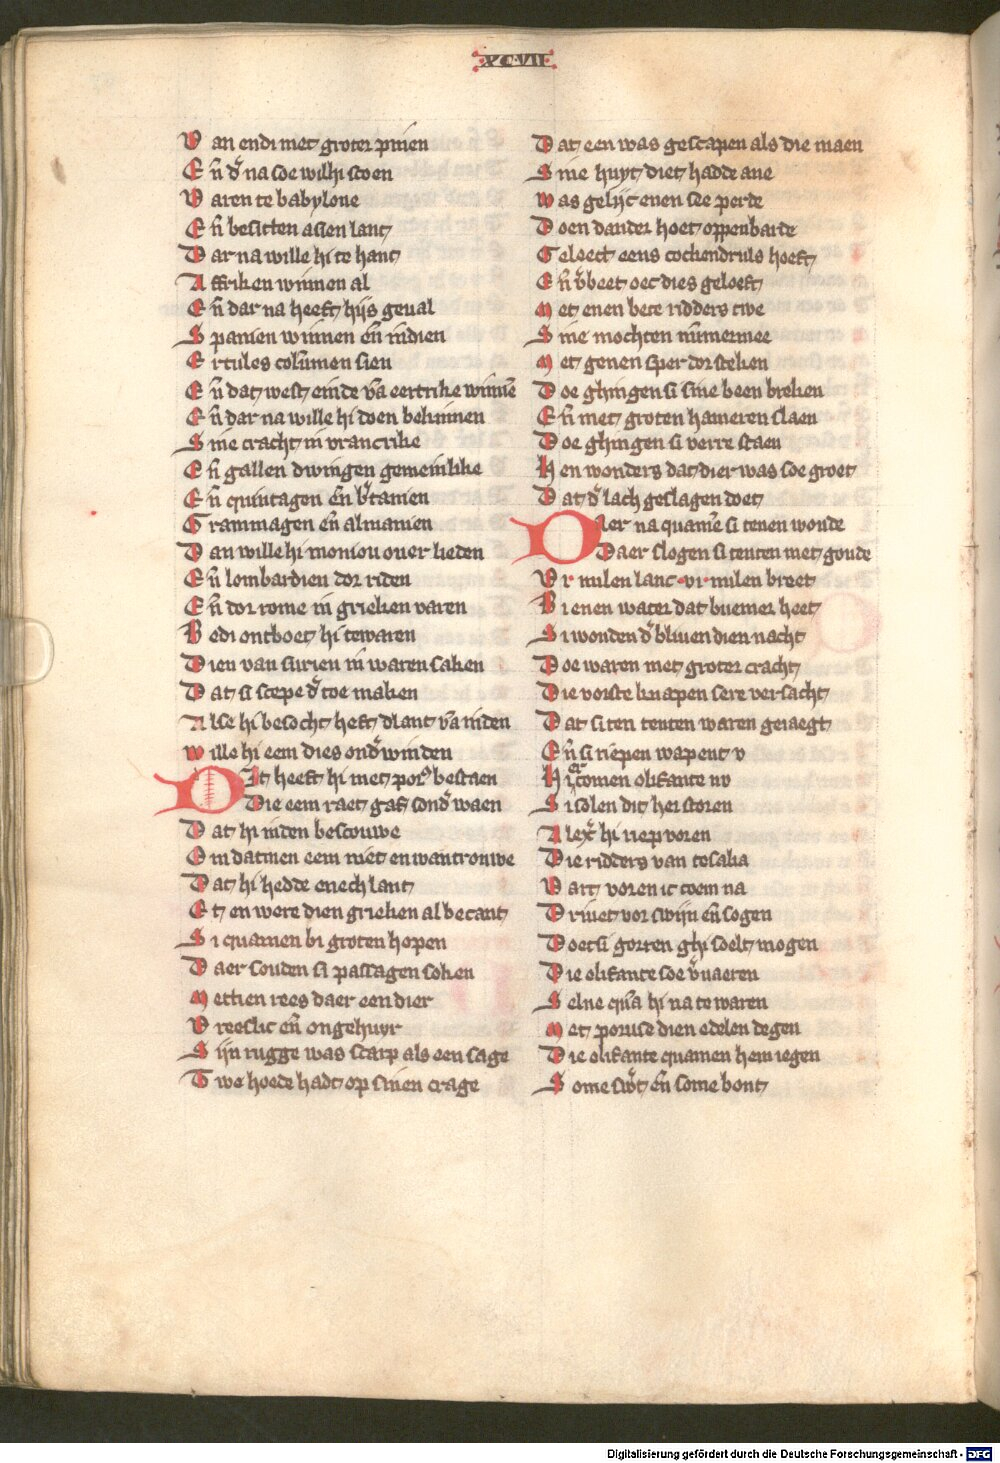 XCVII
Van endi met groter pinen
Eñ d̾ na soe wilhi scoen
Varen te babylone
Eñ besitten asien lant
Dar na wille hi te hant
Affriken winnen al
Eñ dar na heeft hijs geual
Spanien winnen eñ indien
Ercules columen sien
Eñ dat west einde vā eertrike winnē
Eñ dar na wille hi doen bekinnen
Sine cracht in vrancrike
Eñ gallen dwingen gemeinlike
Eñ quintagen eñ b̾tanien
Grammagen eñ almanien
Dan wille hi moniou ouer lieden
Eñ lombardien dor riden
Eñ dor rome in grieken varen
Bedi ontboet hi tewaren
Dien van surien in waren saken
Dat si scepe d̾ toe maken
Alse hi besocht heft dlant vā inden
Wille hi eem dies ond̾winden
Dit heeft hi met por9 bestaen
Die eem raet gaf sond̾ waen
Dat hi inden bescouwe
Em datmen eem niet en wantrouwe
Dat hi hedde enech lant
Et en were dien grieken al becant
Si quamen bi groten hopen
Daer souden si passagen soken
Mettien rees daer een dier
Vreeslic eñ ongehuyr
Sijn rugge was scarp als een sage
Twe hoede hadt op sinen crage
Dat een was gescapen als die maen
Sine huyt diet hadde ane
Was gelijc enen see perde
Doen dander hoet oppenbarde
Geleect eens cockendruls hoeft
Eñ v̾beet oec dies geloeft
Met enen bete ridders twe
Sine mochten nūmermee
Met genen sper dorsteken
Doe ghingen si sine been breken
Eñ met groten hameren slaen
Doe ghingen si verre staen
Hen wonders dat dier was soe groet
Dat d̾ lach geslagen doet
Daer na quamē si tenen wonde
Daer slogen si tenten met goude
Vr milen lanc ·vi· milen breet
Bi enen water dat buemer heet
Si wonden d̾ bliuen dien nacht
Doe waren met groter cracht
Die vorste knapen sere versacht
Dat si ten tenten waren geiaegt
Eñ si riepen wapent v
Hi comen olifante nv
Si solen dit her storen
Alex̾ hi riep voren
Die ridders van tesalia
Vart voren ic coem na
Driuet vor swijn eñ sogen
Doet si gorren ghi soelt mogen
Die olifante soe v̾uaeren
Selue quā hi na te waren
Met poruse dien edelen degen
Die olifante quamen hem iegen
Some sw̾t eñ some bont
Digitalisierung gefördert durch die Deutsche Forschungsgemeinschaft - DFG